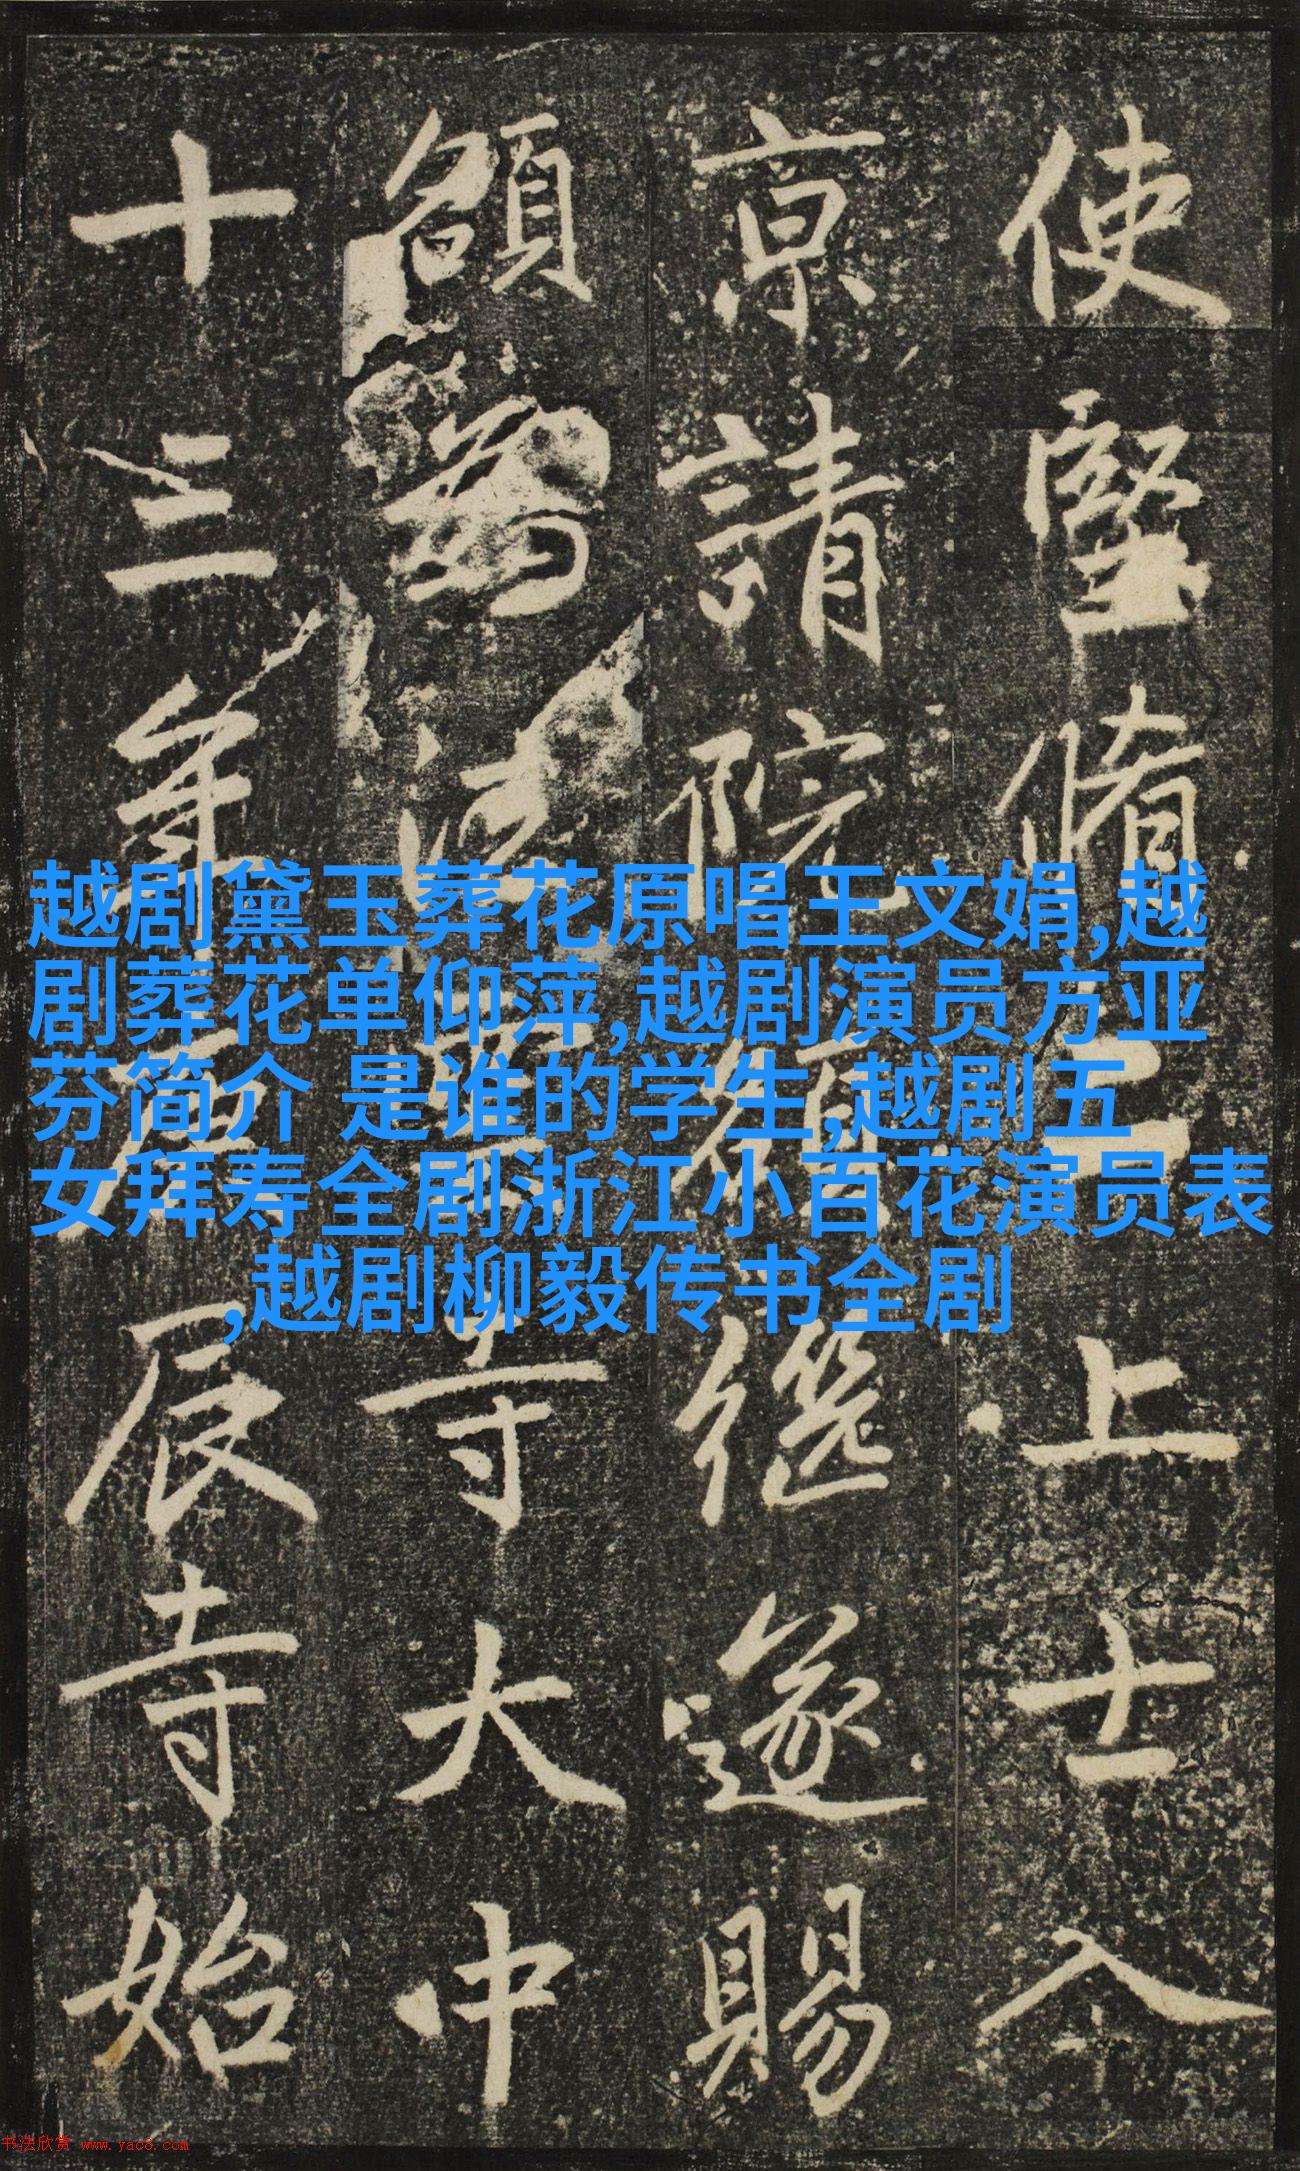 使堅脩二上士入
京請院額繼遂賜
額為法寺大中
十三年辰寺始
越剧黛玉葬花原唱王文娟,越
剧葬花单仰萍,越剧演员方亚
芬简介 是谁的学生,越剧五
女拜寿全剧浙江小百花演员表
,越剧柳毅传书全剧
书法欣赏 www.yac8.com